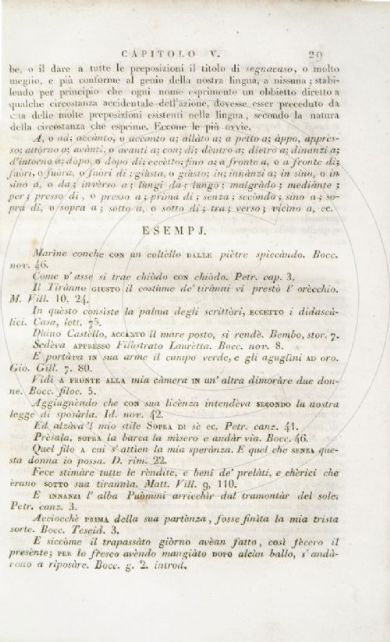 CAPITOLO V. 29
be, o il dare a tutte le preposizioni il titolo di segnacaso, o molto
meglio, e più conforme al genio della nostra lingua, a nissuna; stabi-
lendo per principio che ogni nome esprimente un obbietto diretto a
qualche circostanza accidentale dell'azione, dovesse esser preceduto da
una delle molte preposizioni esistenti nella lingua, secondo la natura
della circostanza che esprime. Eccone le più ovvie.
A, o ad; accànto, o accanto a; allàto a; a pètto a; àppo, appres-
so; attòrno a; avànti, o avanti a; con; di; dèntro a; diètro a; dinanzi a;
d'intorno a; dopo, o dopo di; eccètto; fino a; a fronte a, o a fronte di;
fuòri, o fuora, o fuori di; giùsta, o giusto; in; innànzi a; in sino, o in
sino a, o da; invèrso a; lungi da; lungo; malgràdo; mediànte;
per; presso di, o presso a; prima di; senza; secóndo; sino a; so-
pra di, o sopra a; sotto a, o sotto di; tra; verso; vicìno a, ec.
ESEMPJ.
Marine conche CON un coltèllo DALLE piètre spiccàndo. Bocc.
nov. 46.
Come d'asse si trae chiòdo CON chiòdo. Petr. cap. 3.
Il Tirànno GIUSTO il costume de' tirànni vi prestò l'orècchio.
M. Vill. 10, 24.
In questo consiste la palma degli scrittòri, ECCETTO i didascà-
lici. Casa, lett. 75.
Castèllo, ACCÀNTO il mare posto, si rendè. Bembo, stor. 7.
Sedèva APPRESSO Filòstrato Laurètta. Bocc. nov. 8.
E portàva IN sua arme il campo verde, e gli aguglini AD oro.
Gio. Gill. 7. 80.
Vidi A FRONTE ALLA mia càmera IN un'altra dimoràre due don-
ne. Bocc. filoc. 5.
Aggiugnèndo che CON sua licènza intendeva SECONDO la nostra
legge di sposàrla. Id. nov. 42.
Ed alzàva 'l mio stile SOPRA DI sè ec. Petr. canz. 41.
Prèsala, SOPRA la barca la mìsero e andàr via. Bocc. 46.
Quel filo A cui s'attien la mia sperànza. E quel che SENZA que-
sta donna io possa. D. rim. 22.
Fece stimàre tutte le rèndite, e beni de' prelàti, e chèrici che
èrano SOTTO sua tirannìa. Matt. Vill. 9, 110.
E INNANZI l'alba arricchìr dal tramontàr del sole.
Petr. canz. 3.
Acciocchè PRIMA della sua partènza, fosse finita la mia trista
sorte. Bocc. Teseid. 3.
E siccòme il trapassàto giòrno avèan fatto, così fècero il
presènte; PER lo fresco avèndo mangiàto DOPO alcùn ballo, s'andà-
rono a riposàre. Bocc. g. 2. introd.